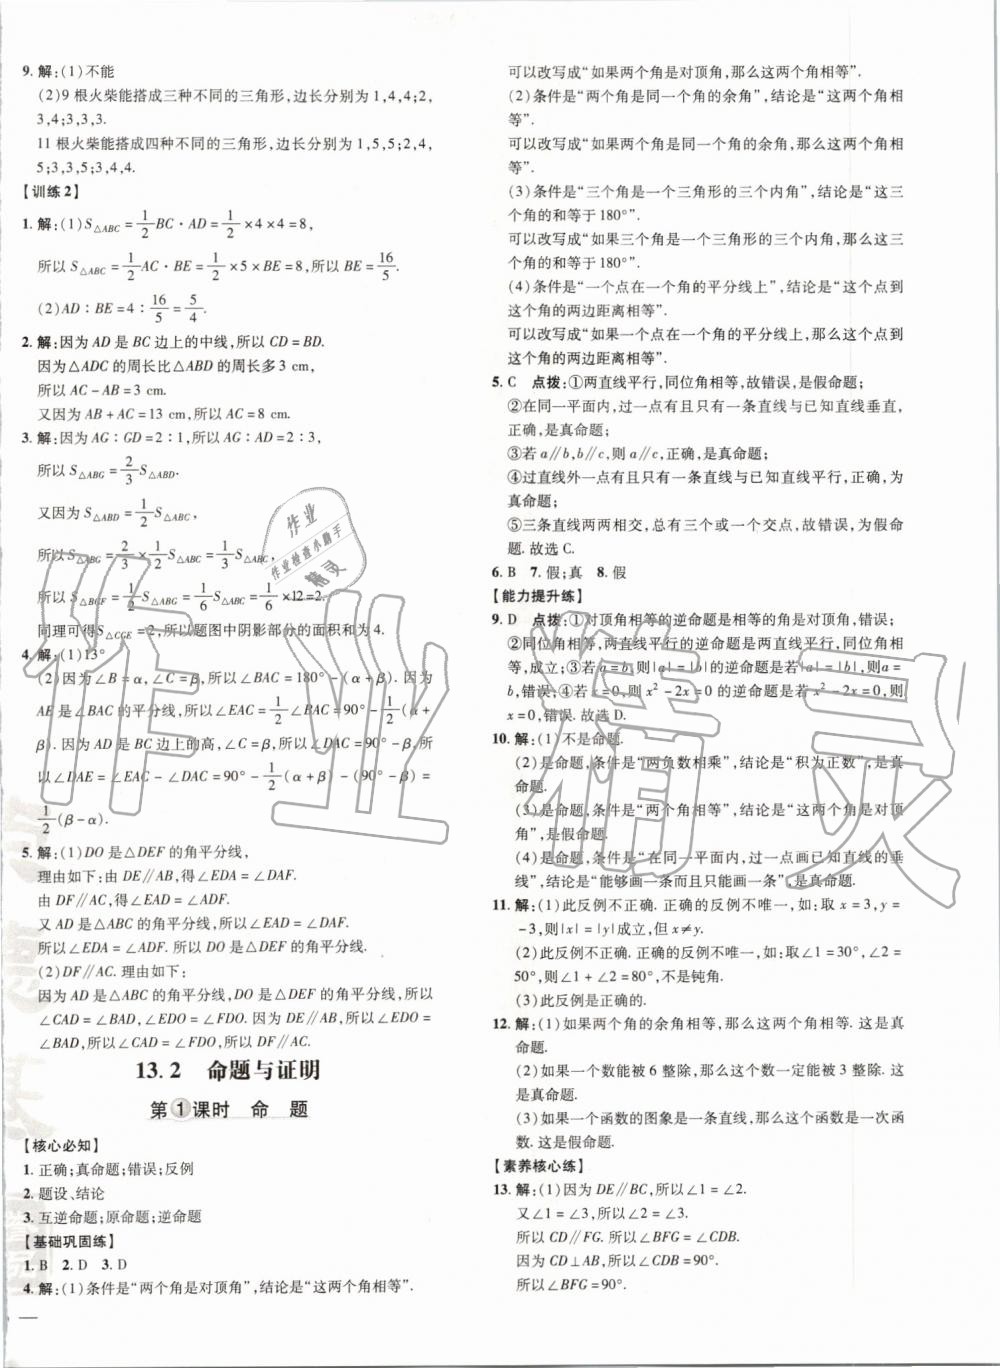 9. 解:(1)不能
(2)9 根火柴能搭成三种不同的三角形,边长分别为 1,4,4;2,
3,4;3,3,3.
11 根火柴能搭成四种不同的三角形,边长分别为 1,5,5;2,4,
5;3,3,5;3,4,4.
【训练2】
1. 解:(1)S△ABC=1/2BC·AD=1/2×4×4=8,
所以 S△ABC=1/2AC·BE=1/2×5×BE=8,所以 BE=16/5.
(2)AD∶BE=4∶16/5=5/4.
2. 解:因为 AD 是 BC 边上的中线,所以 CD=BD.
因为△ADC 的周长比△ABD 的周长多 3 cm,
所以 AC-AB=3 cm.
又因为 AB+AC=13 cm,所以 AC=8 cm.
3. 解:因为 AG∶GD=2∶1,所以 AG∶AD=2∶3,
所以 S△ABG=2/3S△ABD.
又因为 S△ABD=1/2S△ABC,
所以 S△ABG=2/3×1/2S△ABC=1/3S△ABC,
所以 S△BGF=1/2S△ABG=1/6S△ABC=1/6×12=2.
同理可得S△CGE=2,所以题图中阴影部分的面积为 4.
4. 解:(1)13°
(2)因为∠B=α,∠C=β,所以∠BAC=180°-(α+β). 因为
AE 是∠BAC 的平分线,所以∠EAC=1/2∠BAC=90°-1/2(α+
β). 因为 AD 是 BC 边上的高,∠C=β,所以∠DAC=90°-β,所
以∠DAE=∠EAC-∠DAC=90°-1/2(α+β)-(90°-β)=
1/2(β-α).
5. 解:(1)DO 是△DEF 的角平分线,
理由如下:由 DE∥AB,得∠EDA=∠DAF.
由 DF∥AC,得∠EAD=∠ADF.
又 AD 是△ABC 的角平分线,所以∠EAD=∠DAF.
所以∠EDA=∠ADF. 所以 DO 是△DEF 的角平分线.
(2)DF∥AC. 理由如下:
因为 AD 是△ABC 的角平分线,DO 是△DEF 的角平分线,所以
∠CAD=∠BAD,∠EDO=∠FDO. 因为 DE∥AB,所以∠EDO=
∠BAD,所以∠CAD=∠FDO,所以 DF∥AC.
13.2 命题与证明
第1课时 命 题
【核心必知】
1. 正确;真命题;错误;反例
2. 题设、结论
3. 互逆命题;原命题;逆命题
【基础巩固练】
1. B 2. D 3. D
4. 解:(1)条件是“两个角是对顶角”,结论是“这两个角相等”.
可以改写成“如果两个角是对顶角,那么这两个角相等”.
(2)条件是“两个角是同一个角的余角”,结论是“这两个角相
等”.
可以改写成“如果两个角是同一个角的余角,那么这两个角相
等”.
(3)条件是“三个角是一个三角形的三个内角”,结论是“这三
个角的和等于 180°”.
可以改写成“如果三个角是一个三角形的三个内角,那么这三
个角的和等于 180°”.
(4)条件是“一个点在一个角的平分线上”,结论是“这个点到
这个角的两边距离相等”.
可以改写成“如果一个点在一个角的平分线上,那么这个点到
这个角的两边距离相等”.
5. C 点拨:①两直线平行,同位角相等,故错误,是假命题;
②在同一平面内,过一点有且只有一条直线与已知直线垂直,
正确,是真命题;
③若 a∥b,b∥c,则 a∥c,正确,是真命题;
④过直线外一点有且只有一条直线与已知直线平行,正确,为
真命题;
⑤三条直线两两相交,总有三个或一个交点,故错误,为假命
题. 故选 C.
6. B 7. 假;真 8. 假
【能力提升练】
9. D 点拨:①对顶角相等的逆命题是相等的角是对顶角,错误;
②同位角相等,两直线平行的逆命题是两直线平行,同位角相
等,成立;③若 a=b,则|a|=|b|的逆命题是若|a|=|b|,则a=
b,错误;④若 x=0,则 x²-2x=0 的逆命题是若 x²-2x=0,则
x=0,错误. 故选 D.
10. 解:(1)不是命题.
(2)是命题,条件是“两负数相乘”,结论是“积为正数”,是真
命题.
(3)是命题,条件是“两个角相等”,结论是“这两个角是对顶
角”,是假命题.
(4)是命题,条件是“在同一平面内,过一点画已知直线的垂
线”,结论是“能够画一条而且只能画一条”,是真命题.
11. 解:(1)此反例不正确. 正确的反例不唯一,如:取 x=3,y=
-3,则|x|=|y|成立,但 x≠y.
(2)此反例不正确. 正确的反例不唯一,如:取∠1=30°,∠2=
50°,则∠1+∠2=80°,不是钝角.
(3)此反例是正确的.
12. 解:(1)如果两个角的余角相等,那么这两个角相等. 这是真
命题.
(2)如果一个数能被 6 整除,那么这个数一定能被 3 整除. 这
是真命题.
(3)如果一个函数的图象是一条直线,那么这个函数是一次函
数. 这是假命题.
【素养核心练】
13. 解:(1)因为 DE∥BC,所以∠1=∠2.
又∠1=∠3,所以∠2=∠3.
所以 CD∥FG. 所以∠BFG=∠CDB.
因为 CD⊥AB,所以∠CDB=90°.
所以∠BFG=90°.
作业
作业检查小助手
精灵
作业精灵